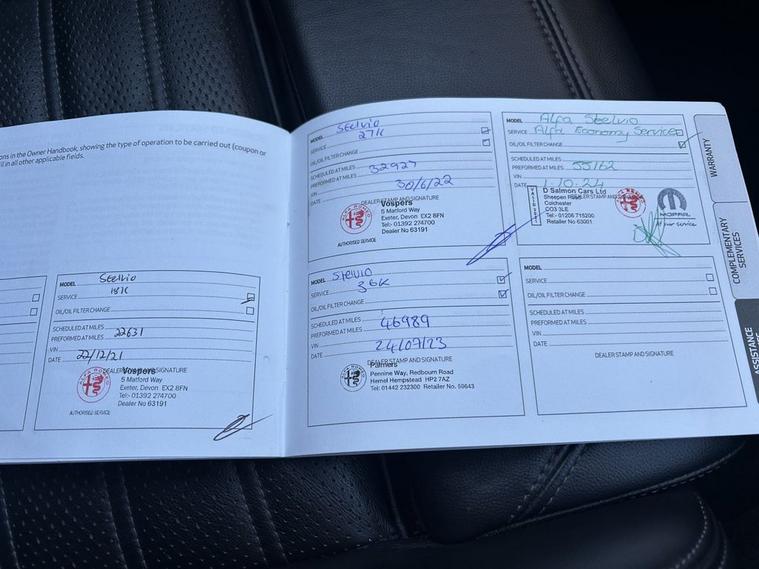 ons in the Owner Handbook, showing the type of operation to be carried out (coupon or
ll in all other applicable fields.
MODEL Stelvio
SERVICE 18K
OIL/OIL FILTER CHANGE
SCHEDULED AT MILES
PREFORMED AT MILES 22631
VIN
DATE 22/12/21
DEALER STAMP AND SIGNATURE
Vospers
5 Matford Way
Exeter, Devon EX2 8FN
Tel:- 01392 274700
Dealer No 63191
AUTHORISED SERVICE
MODEL Stelvio
SERVICE 27K
OIL/OIL FILTER CHANGE
SCHEDULED AT MILES
PREFORMED AT MILES 32927
VIN
DATE 30/6/22
DEALER STAMP AND SIGNATURE
Vospers
5 Matford Way
Exeter, Devon EX2 8FN
Tel:- 01392 274700
Dealer No 63191
AUTHORISED SERVICE
MODEL Stelvio
SERVICE 36K
OIL/OIL FILTER CHANGE
SCHEDULED AT MILES
PREFORMED AT MILES 46989
VIN
DATE 24/07/23
DEALER STAMP AND SIGNATURE
Palmers
Pennine Way, Redbourn Road
Hemel Hempstead HP2 7AZ
Tel: 01442 232300 Retailer No. 59643
MODEL Alfa Stelvio
SERVICE Alfa Economy Service
OIL/OIL FILTER CHANGE
SCHEDULED AT MILES
PREFORMED AT MILES 55162
VIN
DATE 1.10.24
DEALER STAMP AND SIGNATURE
D Salmon Cars Ltd
Sheepen Road
Colchester
CO3 3LE
Tel:- 01206 715200
Retailer No 63001
MOPAR
MODEL
SERVICE
OIL/OIL FILTER CHANGE
SCHEDULED AT MILES
PREFORMED AT MILES
VIN
DATE
DEALER STAMP AND SIGNATURE
WARRANTY
COMPLEMENTARY
SERVICES
ASSISTANCE